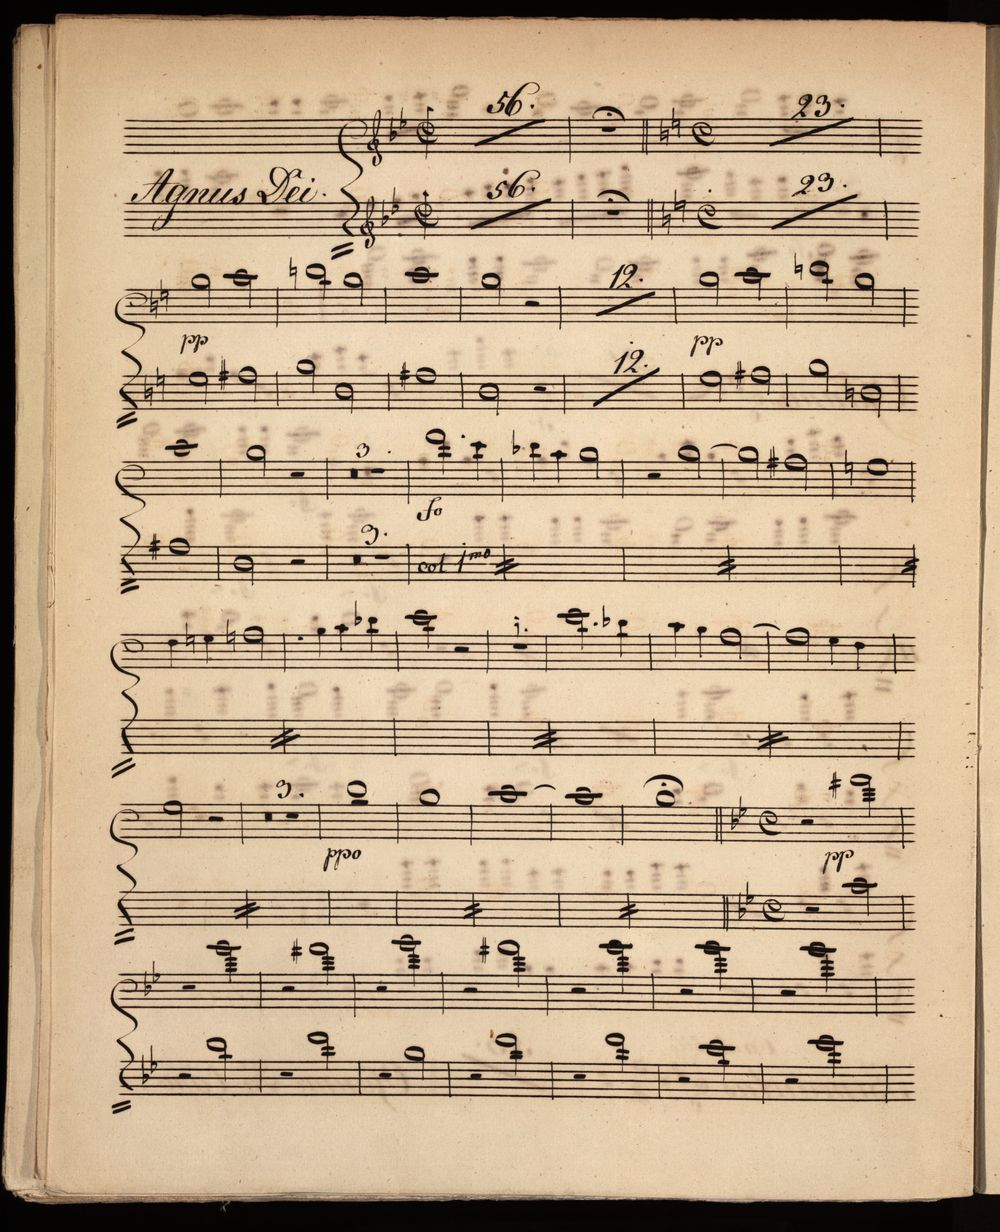 56. 23.
Agnus Dei.
56. 23.
12.
pp pp
12.
3.
fo
3.
col 1mo
3.
ppo pp